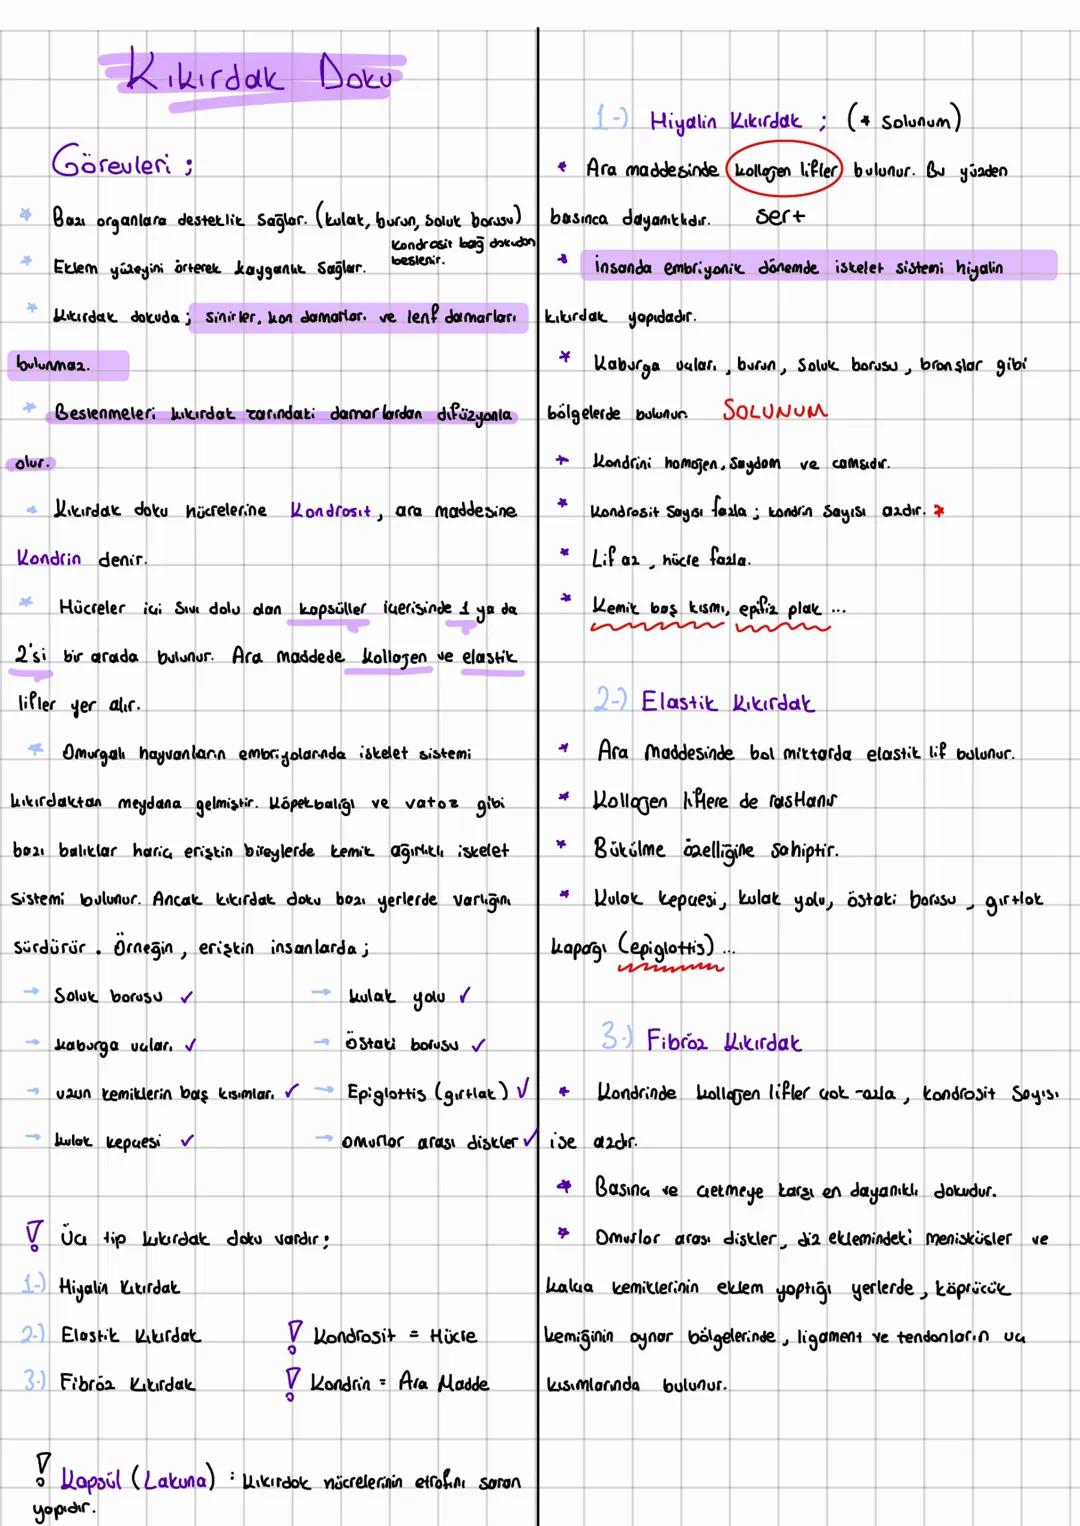 Kıkırdak Doku
Görevleri ;
* Bazı organlara desteklik sağlar. (kulak, burun, soluk borusu)
Kondrosit bağ dokudan
beslenir.
* Eklem yüzeyini örterek kayganlık sağlar.
* Kıkırdak dokuda ; sinirler, kan damarları ve lenf damarları
bulunmaz.
* Beslenmeleri kıkırdak zarındaki damarlardan difüzyonla
olur.
* Kıkırdak doku hücrelerine Kondrosit, ara maddesine
Kondrin denir.
* Hücreler içi sıvı dolu olan kapsüller içerisinde 1 ya da
2'si bir arada bulunur. Ara maddede kollagen ve elastik
lifler yer alır.
* Omurgalı hayvanların embriyolarında iskelet sistemi
kıkırdaktan meydana gelmiştir. Köpekbalığı ve vatoz gibi
bazı balıklar hariç erişkin bireylerde kemik ağırlıklı iskelet
sistemi bulunur. Ancak kıkırdak doku bazı yerlerde varlığını
sürdürür. Örneğin, erişkin insanlarda ;
→ Soluk borusu ✓
→ kaburga uçları ✓
→ uzun kemiklerin baş kısımları ✓
→ kulak kepçesi ✓
→ kulak yolu ✓
→ östaki borusu ✓
→ Epiglottis (gırtlak) ✓
→ omurlar arası diskler ✓
! Üç tip kıkırdak doku vardır :
1-) Hiyalin Kıkırdak
2-) Elastik Kıkırdak
3-) Fibröz Kıkırdak
! Kondrosit = Hücre
! Kondrin = Ara Madde
! Kapsül (Lakuna) : Kıkırdak hücrelerinin etrafını saran
yapıdır.
1-) Hiyalin Kıkırdak ; (* Solunum)
* Ara maddesinde kollogen lifler bulunur. Bu yüzden
basınca dayanıklıdır. sert
* İnsanda embriyonik dönemde iskelet sistemi hiyalin
kıkırdak yapıdadır.
* Kaburga uçları, burun, Soluk borusu, bronşlar gibi
bölgelerde bulunur. SOLUNUM
* Kondrini homojen, saydam ve camsıdır.
* Kondrosit sayısı fazla ; kondrin sayısı azdır. *
* Lif az, hücre fazla.
* Kemik baş kısmı, epifiz plak ...
2-) Elastik Kıkırdak
* Ara maddesinde bol miktarda elastik lif bulunur.
* Kollagen liflere de rastlanır
* Bükülme özelliğine sahiptir.
* Kulak kepçesi, kulak yolu, östaki borusu, gırtlak
kapağı (epiglottis) ...
3-) Fibröz Kıkırdak
* Kondrinde kollagen lifler çok fazla, kondrosit sayısı
ise azdır.
* Basınç ve çekmeye karşı en dayanıklı dokudur.
* Omurlar arası diskler, diz eklemindeki menisküsler ve
kalça kemiklerinin eklem yaptığı yerlerde, köprücük
kemiğinin oynar bölgelerinde, ligament ve tendonların uç
kısımlarında bulunur.